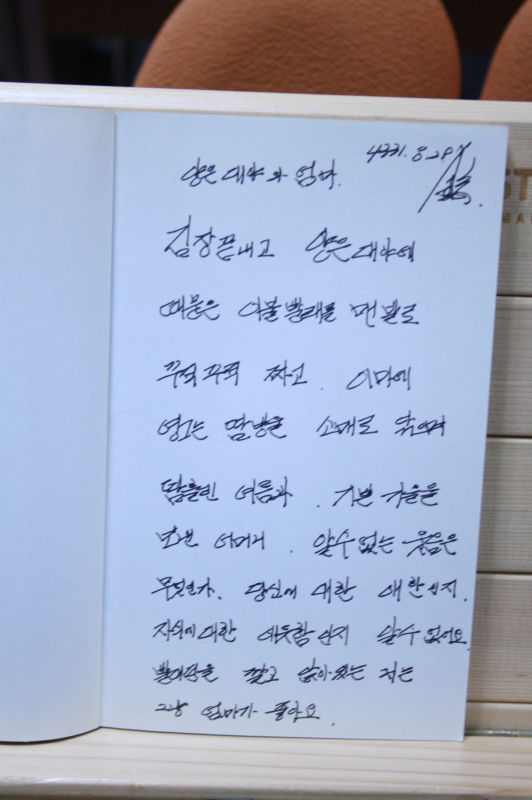 4331. 8. 28
양은 대야와 엄마.
김장끝내고 양은대야에
때묻은 이불빨래를 맨발로
꾸적꾸적 짜고. 이마에
영그는 땀방울 소매로 훔치며
땀흘린 여름과. 기쁜 가을을
보낸 어머니. 알수없는 웃음은
무엇인가. 당신에 대한 애한인지.
자식에대한 애틋함인지 알수없어요.
빨래판을 깔고 앉아있는 저는
그냥 엄마가 좋아요.
ST
MA